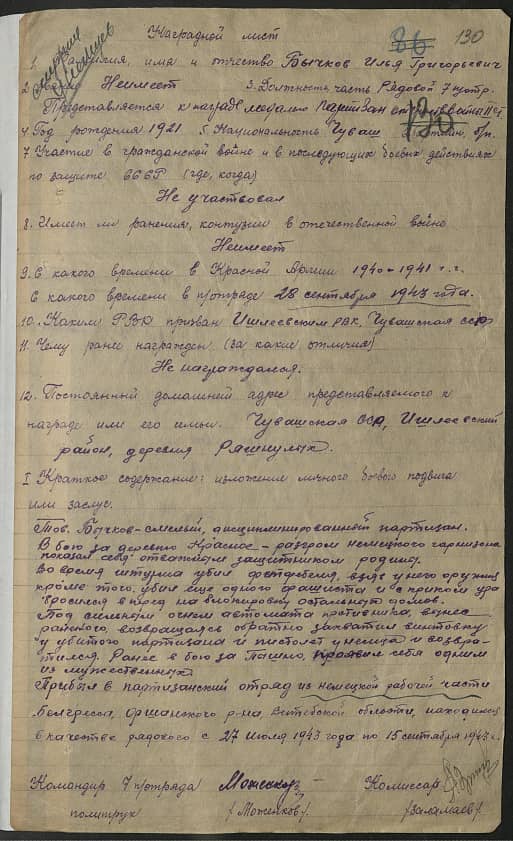 86 130
Наградной лист
1. Фамилия, имя и отчество Бычков Илья Григорьевич
2. Неимеет 3. Должность, часть Рядовой 7 п/отр.
Представляется к награде медалью Партизан
4. Год рождения 1921 5. Национальность Чуваш
7. Участие в гражданской войне и в последующих боевых действиях
по защите СССР (где, когда)
Не участвовал
8. Имеет ли ранения, контузии в отечественной войне
Неимеет
9. С какого времени в Красной Армии 1940-1941 г.г.
С какого времени в п/отряде 28 сентября 1943 года.
10. Каким РВК призван Ишлеевским РВК, Чувашская ССР
11. Чему ранее награжден (за какие отличия)
Не награждался.
12. Постоянный домашней адрес представляемого к
награде или его семьи. Чувашская ССР, Ишлеевский
район, деревня
I Краткое содержание: изложение личного боевого подвига
или заслуг.
Тов. Бычков-смелый, дисциплинированный партизан.
В бою за деревню Красное - разгром немецкого гарнизона
показал себя отважным защитником родины.
Во время штурма убил фельдфебеля, взяв у него оружие
кроме того, убил еще одного фашиста и с криком ура
бросился вперед на блокировку остальных домов.
Под сильным огнем автомата противника, вынес
раненого, возвращаясь обратно захватил винтовку
у убитого партизана и пистолет у немца и возвра-
тился. Ранее в бою за Пашно, проявил себя одним
из мужественных.
Прибыл в партизанский отряд из немецкой рабочей части
Болгресса, Оршанского р-на, Витебской области, находился
в качестве рядового с 27 июля 1943 года по 15 сентября 1943 г.
Командир 7 п/отряда Комиссар
политрук /Моженков/. /Заламаев/